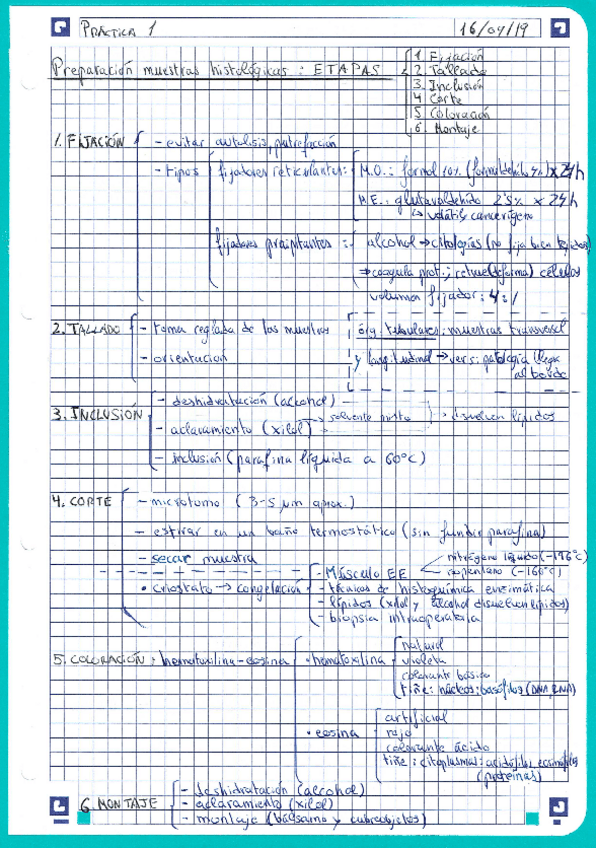 PRÁCTICA 1 16/04/19
Preparación muestras histológicas: ETAPAS
1 Fijación
2. Tallado
3. Inclusión
4 Corte
5 Coloración
6. Montaje
1. FIJACIÓN
- evitar autolisis, putrefacción
- tipos
fijadores reticulantes:
M.O.: formol 10% (formaldehído 4%) x 24h
M.E.: glutaraldehído 2'5% x 24h
↳ volátil, cancerígeno
fijadores precipitantes:
alcohol → citologías (no fija bien tejidos)
⇒ coagula prot.; retrae (deforma) células
volumen fijador: 4:1
2. TALLADO
- toma reglada de las muestras
- orientación
órg. tubulares: muestras transversal
y longitudinal → ver si patología llega
al borde
3. INCLUSIÓN
- deshidratación (alcohol)
- aclaramiento (xilol) → solvente mixto → disuelven lípidos
- inclusión (parafina líquida a 60°C)
4. CORTE
- microtomo (3-5 µm aprox.)
- estirar en un baño termostático (sin fundir parafina)
- secar muestra
• criostato → congelación
- Músculo EE
nitrógeno líquido (-196°C)
isopentano (-160°C)
- técnicas de histoquímica enzimática
- lípidos (xilol y alcohol disuelven lípidos)
- biopsia intraoperatoria
5. COLORACIÓN: hematoxilina-eosina
• hematoxilina
natural
violeta
colorante básico
tiñe: núcleos: basófilos (DNA, RNA)
• eosina
artificial
rojo
colorante ácido
tiñe: citoplasmas: acidófilos, eosinófilos
(proteínas)
6. MONTAJE
- deshidratación (alcohol)
- aclaramiento (xilol)
- montaje (bálsamo y cubreobjetos)